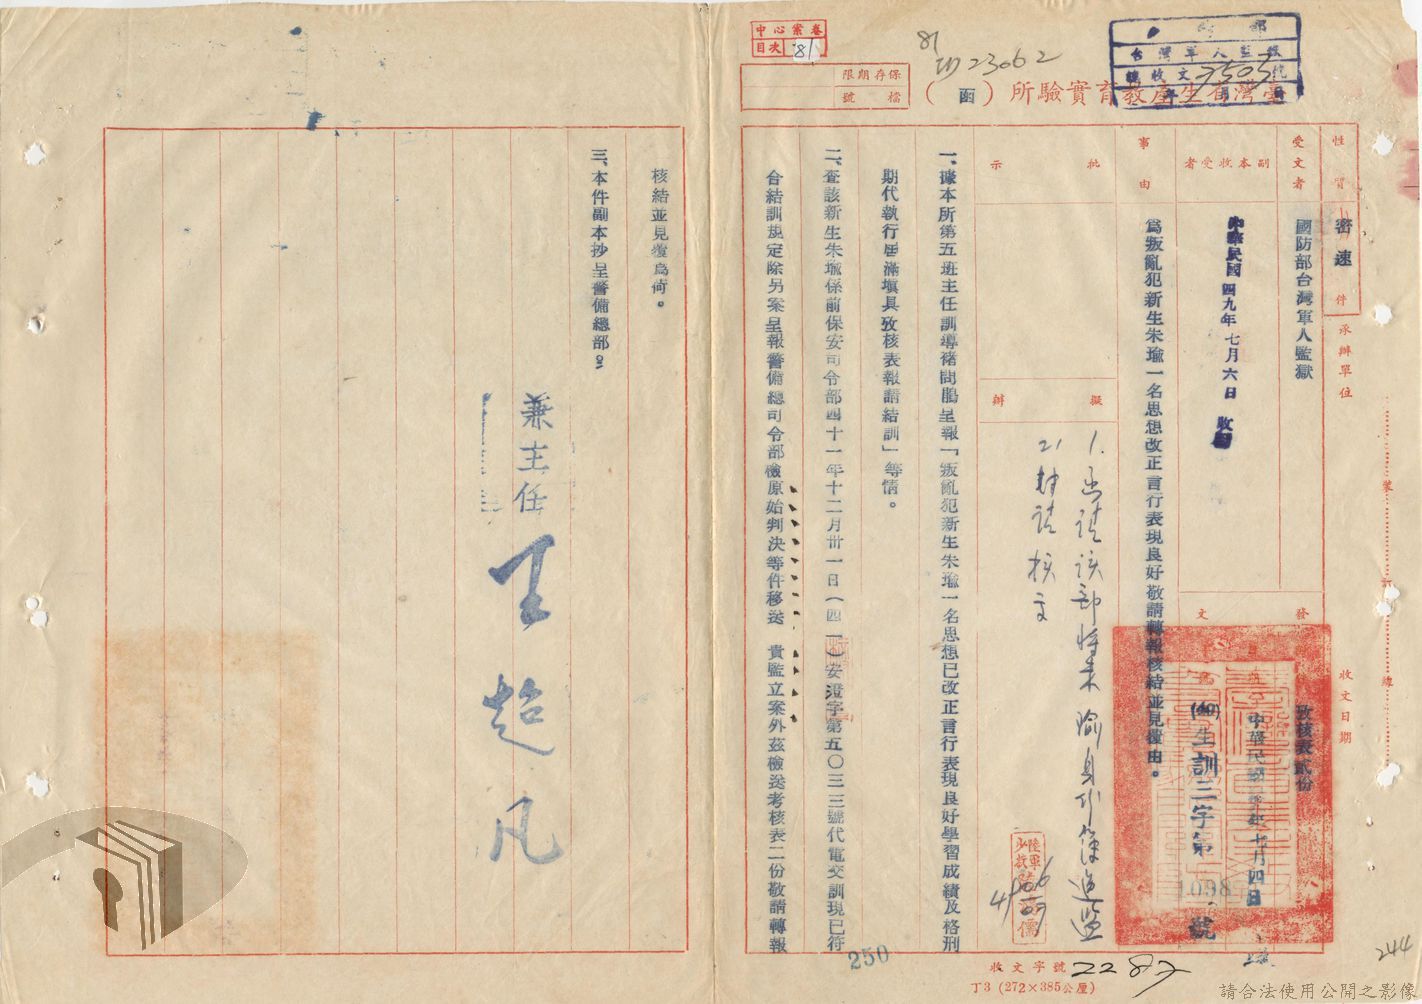 中心案卷
目次 81
保存期限
檔號
81
23062
台灣軍人監獄
總收文7503號
臺灣省生產教育實驗所（函）
性質
密速件
承辦單位
裝
訂
線
收文日期
受文者
國防部台灣軍人監獄
副本收受者
中華民國四九年七月六日
事由
為叛亂犯新生朱瑜一名思想改正言行表現良好敬請轉報核結並見復由。
發文
中華民國 年七月四日
生訓三字第1098號
攷核表貳份
批示
擬辦
1.函請該部將朱瑜身份簿送監
2.
一、據本所第五班主任訓導褚問鵑呈報「叛亂犯新生朱瑜一名思想已改正言行表現良好學習成績及格刑
期代執行屆滿填具攷核表報請結訓」等情。
二、查該新生朱瑜係前保安司令部四十一年十二月卅一日（四一）安澄字第五〇三三號代電交訓現已符
合結訓規定除另案呈報警備總司令部檢原始判決等件移送 貴監立案外茲檢送考核表二份敬請轉報
核結並見復為荷。
三、本件副本抄呈警備總部。
兼主任 王超凡
250
收文字號 2287
丁3（272×385公厘）
244
請合法使用公開之影像